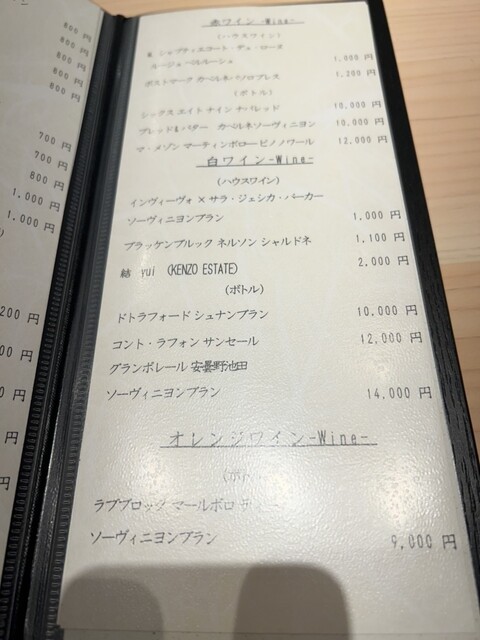 800 円
800 円
800 円
800 円
700 円
700 円
800 円
1,000 円
1,000 円
200 円
00 円
0 円
円
円
赤ワイン -Wine-
(ハウスワイン)
シャプティエ コート・デュ・ローヌ
1,000 円
ポストマーク カベルネ・ソロプレス
1,200 円
(ボトル)
シックス エイト ナイン ナパレッド
10,000 円
ブレッド& バター カベルネソーヴィニヨン
10,000 円
マ・メゾン マーティンボロー ピノノワール
12,000 円
白ワイン-Wine-
(ハウスワイン)
インヴィーヴォ × サラ・ジェシカ・パーカー
ソーヴィニヨンブラン
1,000 円
ブラッケンブルック ネルソン シャルドネ
1,100 円
結 yui (KENZO ESTATE)
2,000 円
(ボトル)
ドトラフォード シュナンブラン
10,000 円
コント・ラフォン サンセール
12,000 円
グランポレール 安曇野池田
ソーヴィニヨンブラン
14,000 円
オレンジワイン-Wine-
ラブブロック マールボロ
ソーヴィニヨンブラン
9,000 円